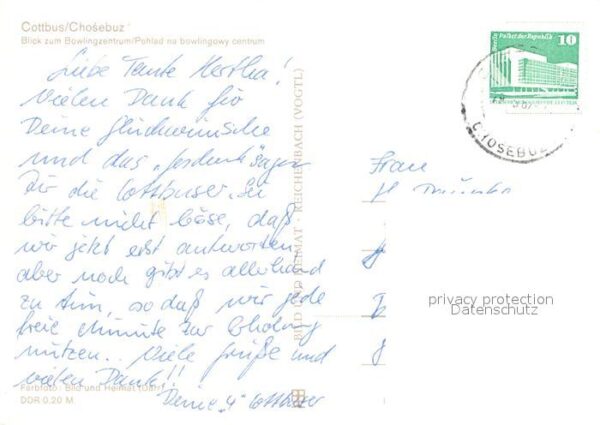 Cottbus/Chośebuz
Blick zum Bowlingzentrum/Pohlad na bowlingowy centrum
Liebe Tante Hertha!
Vielen Dank für
Deine Glückwünsche
und das „Geschenk“ sagen
Dir die Cottbuser. Sei
bitte nicht böse, daß
wir jetzt erst antworten,
aber noch gibt es allerhand
zu tun, so daß wir jede
freie Minute zur Erholung
nutzen.. Viele Grüße und
vielen Dank!!
Deine „4“ Cottbuser
Farbfoto: Bild und Heimat
DDR 0,20 M
BILD UND HEIMAT · REICHENBACH (VOGTL)
Berlin Palast der Republik
10
CHOSEBUZ
Frau
H
privacy protection
Datenschutz